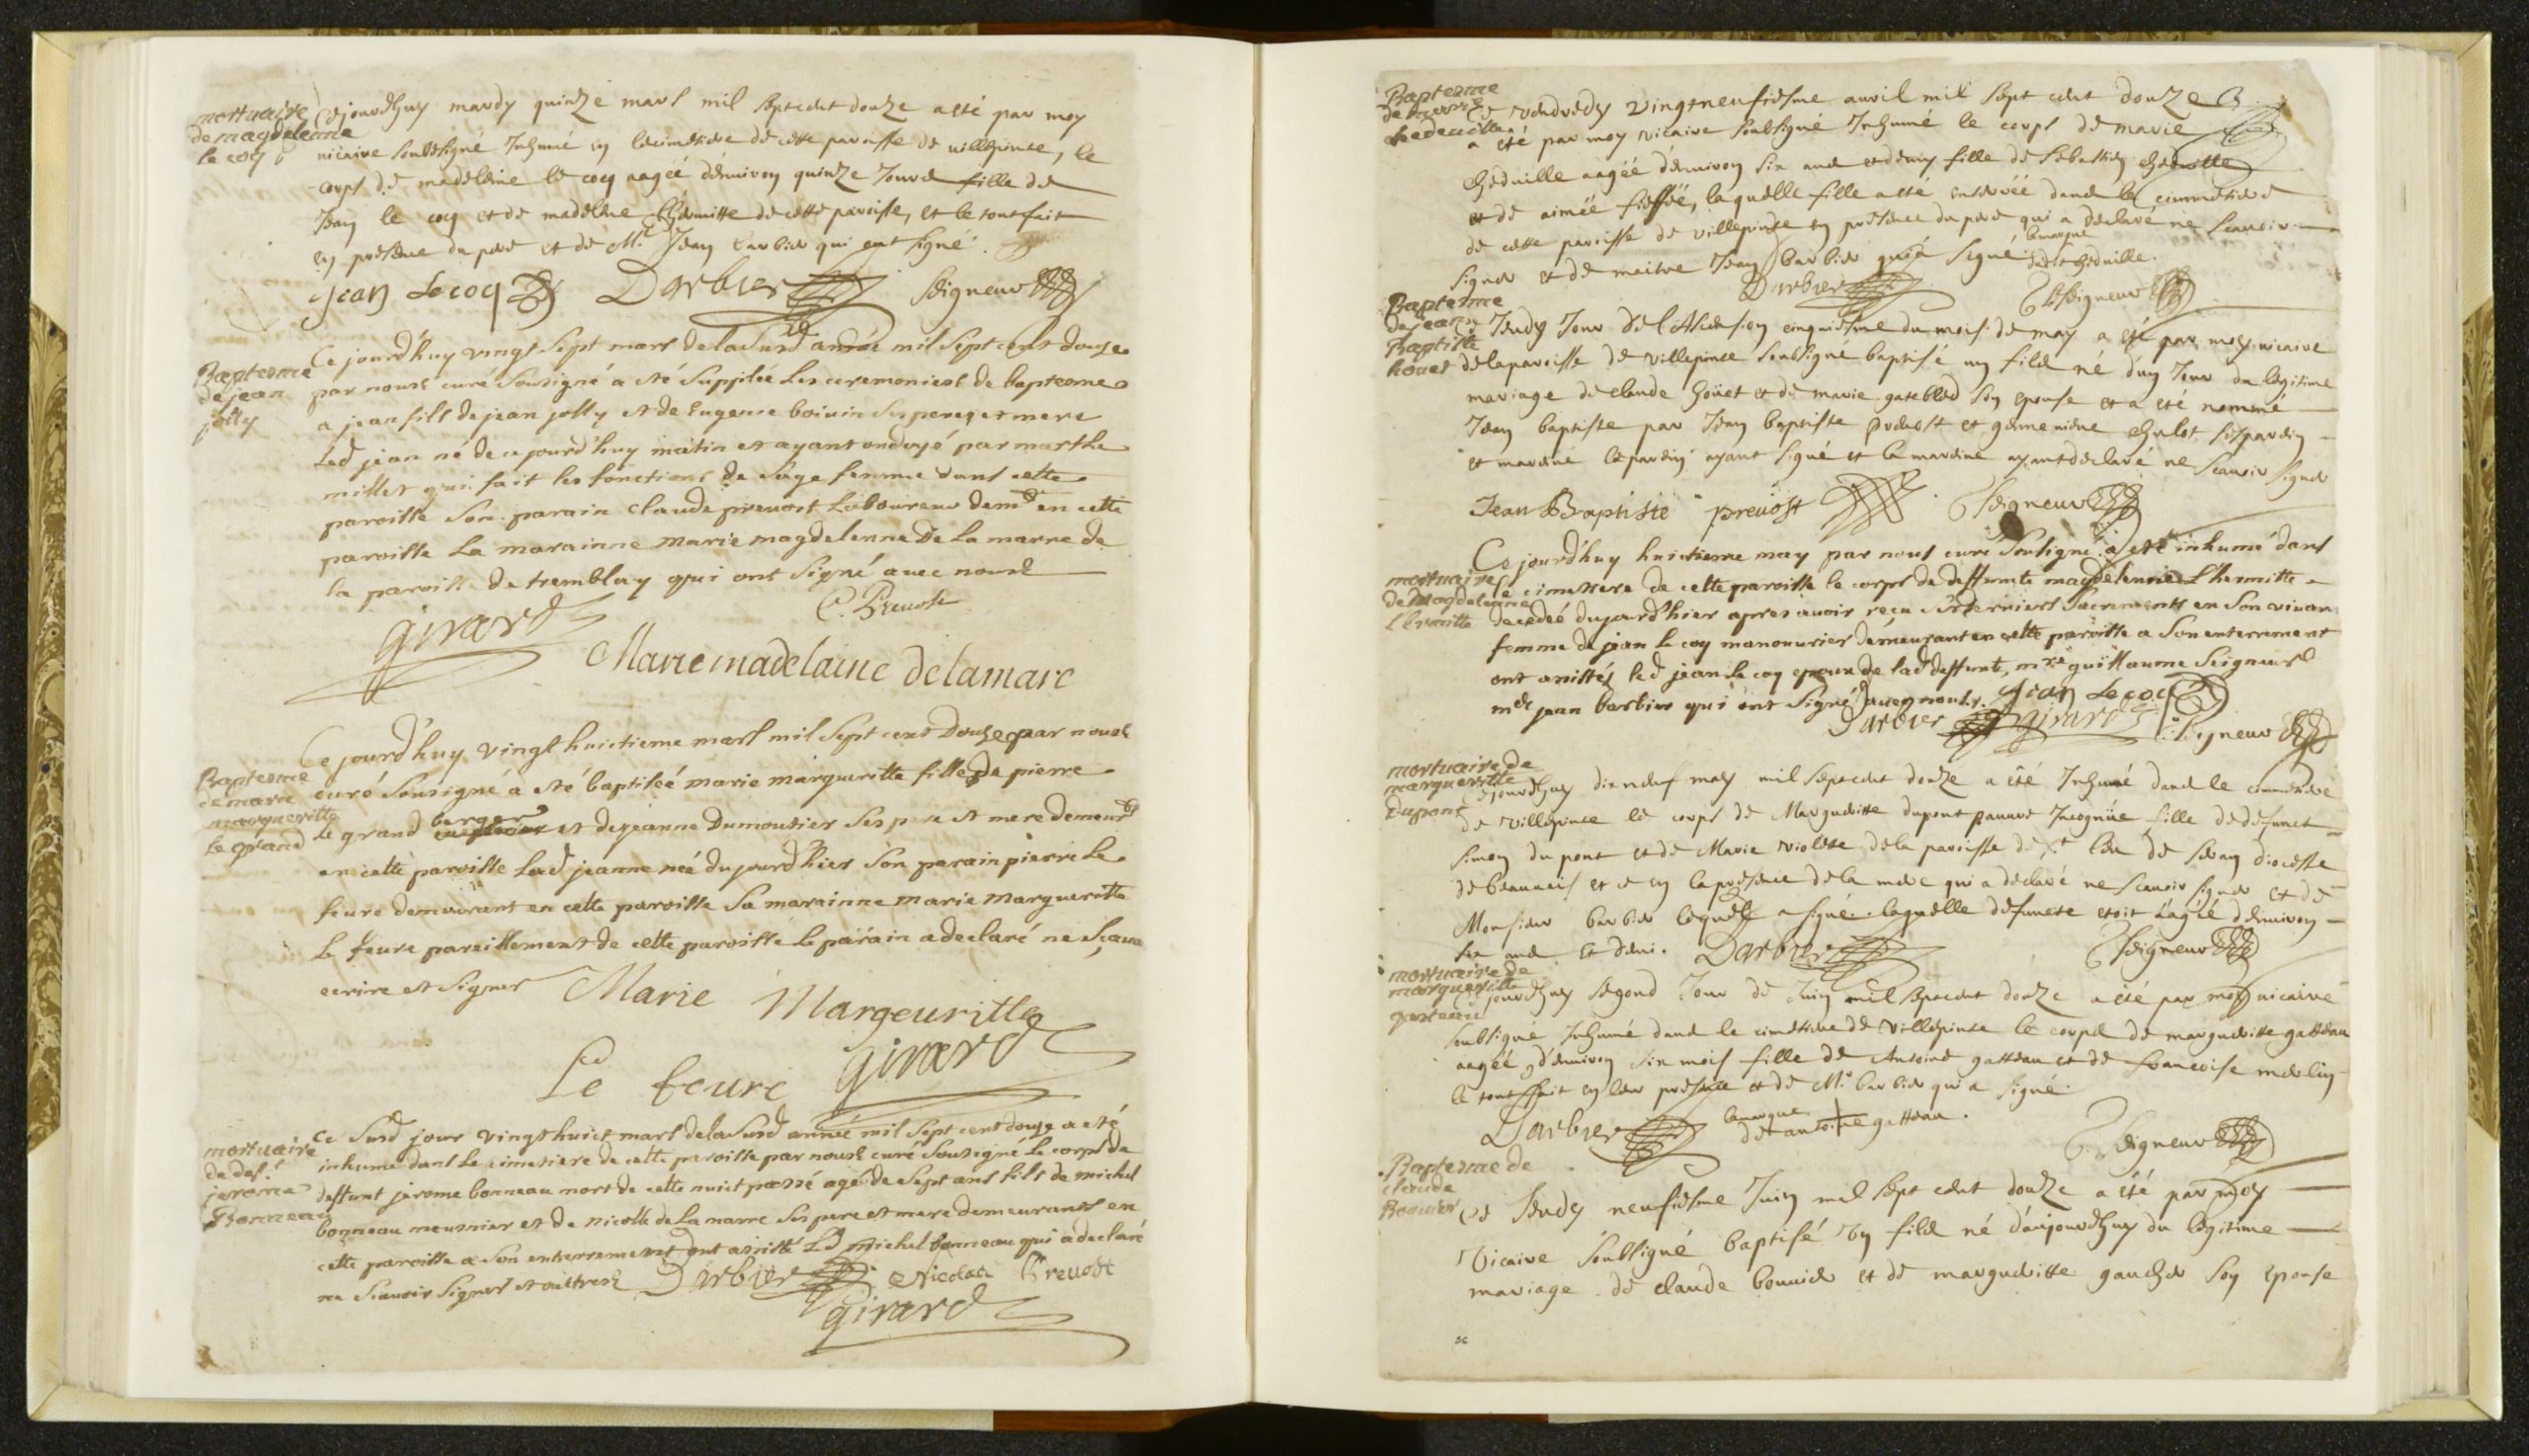 mortuaire
de magdelenne
le coq
Cejourdhuy mardy quinze mars mil septcent douze a esté par moy
vicaire soubsigné Inhumé en lecimetiere de cette paroisse de villepinte, le
corps de madeleine le coq aagéé d'enuiron quinze Jours fille de
Jean le coq et de madelene Lhermitte de cette paroisse, et le tout fait
en presence du pere et de Mr. Jean barbier qui ont signé.
Jean Lecoq Darbier Seigneur
Baptesme
de jean
jolly
Ce jourd'huy vingt sept mars de la susd année mil sept cent douze
par nous curé sousigné a eté supplée les ceremonies de baptesme
a jean fils de jean jolly et de Eugenie boiuin ses pere et mere
Led jean né de ce jourd'huy matin et ayant ondoyé par marthe
millet qui fait les fonctions de sage femme dans cette
paroisse son parain claude preuost Laboureur demt en cette
paroisse La marainne marie magdelenne De La marre de
la paroisse de tremblay qui ont signé auec nous
girard C. Preuost
Marie madelaine delamare
Baptesme
de marie
margueritte
Le grand
Ce jourd'huy vingt huictieme mars mil sept cent Douze par nous
curé sousigné a eté baptiseé marie margueritte fille de pierre
le grand berger et de jeanne Dumoutier ses pere et mere demeurts
en cette paroisse Lad jeanne neé du jourd'hier son parain pierre Le
feure demeurant en cette paroisse sa marainne marie margueritte
Le feure pareillement de cette paroisse le parain a declaré ne scauoir
ecrire et signer Marie Margeuritte
Le feure girard
mortuaire
de deft.
jerome
Bonneau
Ce susd jour vingt huict mars de la susd année mil sept cent douze a eté
inhumé dans Le cimetiere de cette paroisse par nous curé sousigné Le corps de
deffunt jerome bonneau mort de cette nuict passé agé de sept ans fils de michel
bonneau meusnier et de nicolle de La marre ses pere et mere demeurants en
cette paroisse a son enterrement ont assisté Led michel bonneau qui a declaré
ne scauoir signer et aultres Darbier Nicolas Preuost
girard
Baptesme
Chedeuille
Ce vendredy vingtneufiesme auril mil sept cent douze
a eté par moy vicaire soubsigné Inhumé le corps de marie
Chedeuille aagéé d'enuiron six ans et demy fille de sebastien Chedeuille
et de aiméé fiefféé, laquelle fille a eté enterréé dans le cimmetiere
de cette paroisse de villepinte en presence du pere qui a declaré ne scauoir
signer et de maitre Jean barbier qui a signé. la marque
dudit Chedeuille.
Darbier Seigneur
Baptesme
de jean
Baptiste
houet
Ce Jeudy Jour de l'Ascension cinquiesme du mois de may a eté par moy vicaire
de la paroisse de villepinte soubsigné baptisé un fils né d'un Jour du legitime
mariage de claude hoüet et de marie gatebled son epouse et a eté nommé
Jean baptiste par Jean baptiste preuost et geneuieue chulot ses parein
et mareine le parein ayant signé et la mareine ayant declaré ne scauoir signer
Jean Baptiste preuost Seigneur
mortuaire
de Magdelenne
Lhermitte
Ce jourd'huy huictieme may par nous curé sousigné a eté inhumé dans
le cimetiere de cette paroisse le corps de deffuncte magdelenne L'hermitte
decedeé du jourd'hier apres auoir reçu ses derniers sacrements en son viuant
femme de jean le coq manouurier demeurant en cette paroisse a son enterrement
ont assistés led jean le coq epoux de lad deffunte, mre guillaume Seigneur
me jean barbier qui ont signé auec nous. Jean Lecoq
Darbier girard Seigneur
mortuaire de
margueritte
Dupont
Cejourdhuy dixneuf may mil septcent douze a eté Inhumé dans le cimmetiere
de villepinte le corps de Margueritte dupont pauure Incognüe fille de defunct
simon du pont et de Marie violete de la paroisse de st leu de diocesse
de beauuais et ce en la presence de la mere qui a declaré ne scauoir signer et de
Monsieur barbier lequel a signé. laquelle defuncte etoit aagéé d'enuiron
six ans et demi. Darbier Seigneur
mortuaire de
margueritte
gasteau
Cejourdhuy segond Jour de Juin mil septcent douze a eté par moy vicaire
soubsigné Inhumé dans le cimetiere de villepinte le corps de margueritte gatteau
aagéé d'enuiron six mois fille de Antoine gatteau et de francoise merlin
le tout fait en leur presence et de Mr. barbier qui a signé.
Darbier la marque
de antoine gatteau. Seigneur
Baptesme de
claude
Bouuier
Ce Jeudy neufiesme Juin mil sept cent douze a eté par moy
Vicaire soubsigné baptisé un fils né d'aujourdhuy du legitime
mariage de claude bouuier et de margueritte gaucher son epouse